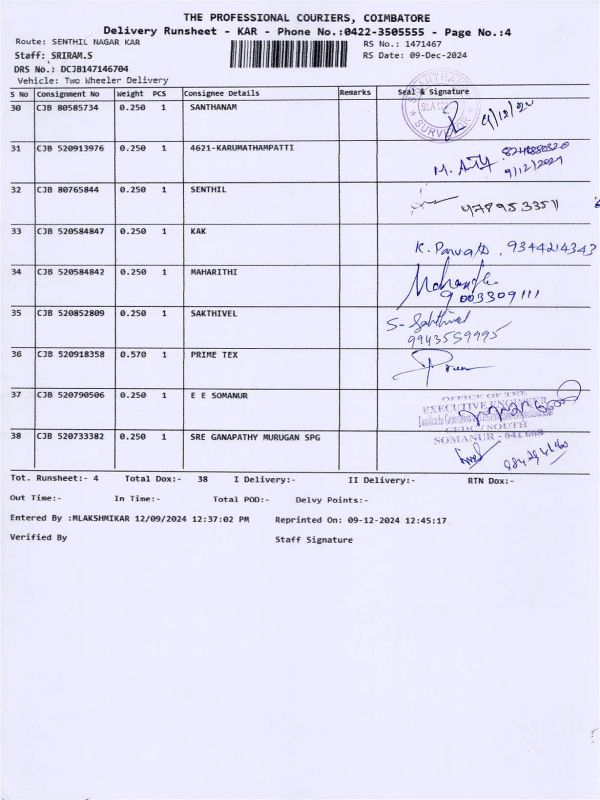 THE PROFESSIONAL COURIERS, COIMBATORE
Delivery Runsheet - KAR - Phone No.:0422-3505555 - Page No.:4
Route: SENTHIL NAGAR KAR RS No.: 1471467
Staff: SRIRAM.S RS Date: 09-Dec-2024
DRS No.: DCJB147146704
Vehicle: Two Wheeler Delivery
S No Consignment No Weight PCS Consignee Details Remarks Seal & Signature
30 CJB 80585734 0.250 1 SANTHANAM
SURVEYOR
31 CJB 520913976 0.250 1 4621-KARUMATHAMPATTI
9/12/2024
32 CJB 80765844 0.250 1 SENTHIL
33 CJB 520584847 0.250 1 KAK
K. Parvathi . 9344214343
34 CJB 520584842 0.250 1 MAHARITHI
9003309111
35 CJB 520852809 0.250 1 SAKTHIVEL
S- Sakthivel
9943559995
36 CJB 520918358 0.570 1 PRIME TEX
37 CJB 520790506 0.250 1 E E SOMANUR
OFFICE OF THE
EXECUTIVE ENGINEER
CEDC / SOUTH
SOMANUR - 641 668
38 CJB 520733382 0.250 1 SRE GANAPATHY MURUGAN SPG
Tot. Runsheet:- 4 Total Dox:- 38 I Delivery:- II Delivery:- RTN Dox:-
Out Time:- In Time:- Total POD:- Delvy Points:-
Entered By :MLAKSHMIKAR 12/09/2024 12:37:02 PM Reprinted On: 09-12-2024 12:45:17
Verified By Staff Signature